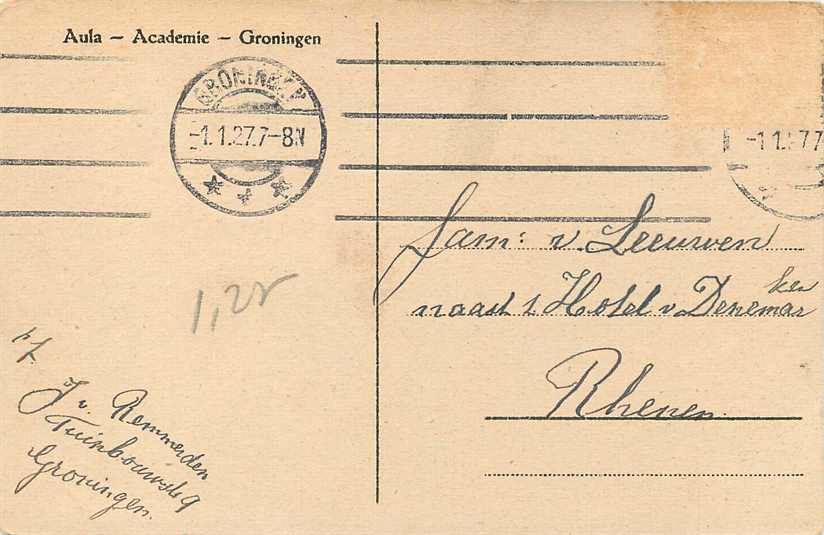 Aula – Academie – Groningen
GRONINGEN
-1.1.27.7-8N
-1 1. 7 7
Fam: v. Leeuwen
naast 't Hotel v Denemar
ken
Rhenen
1,25
J v. Remmerden
Tuinbouwstr 9
Groningen.